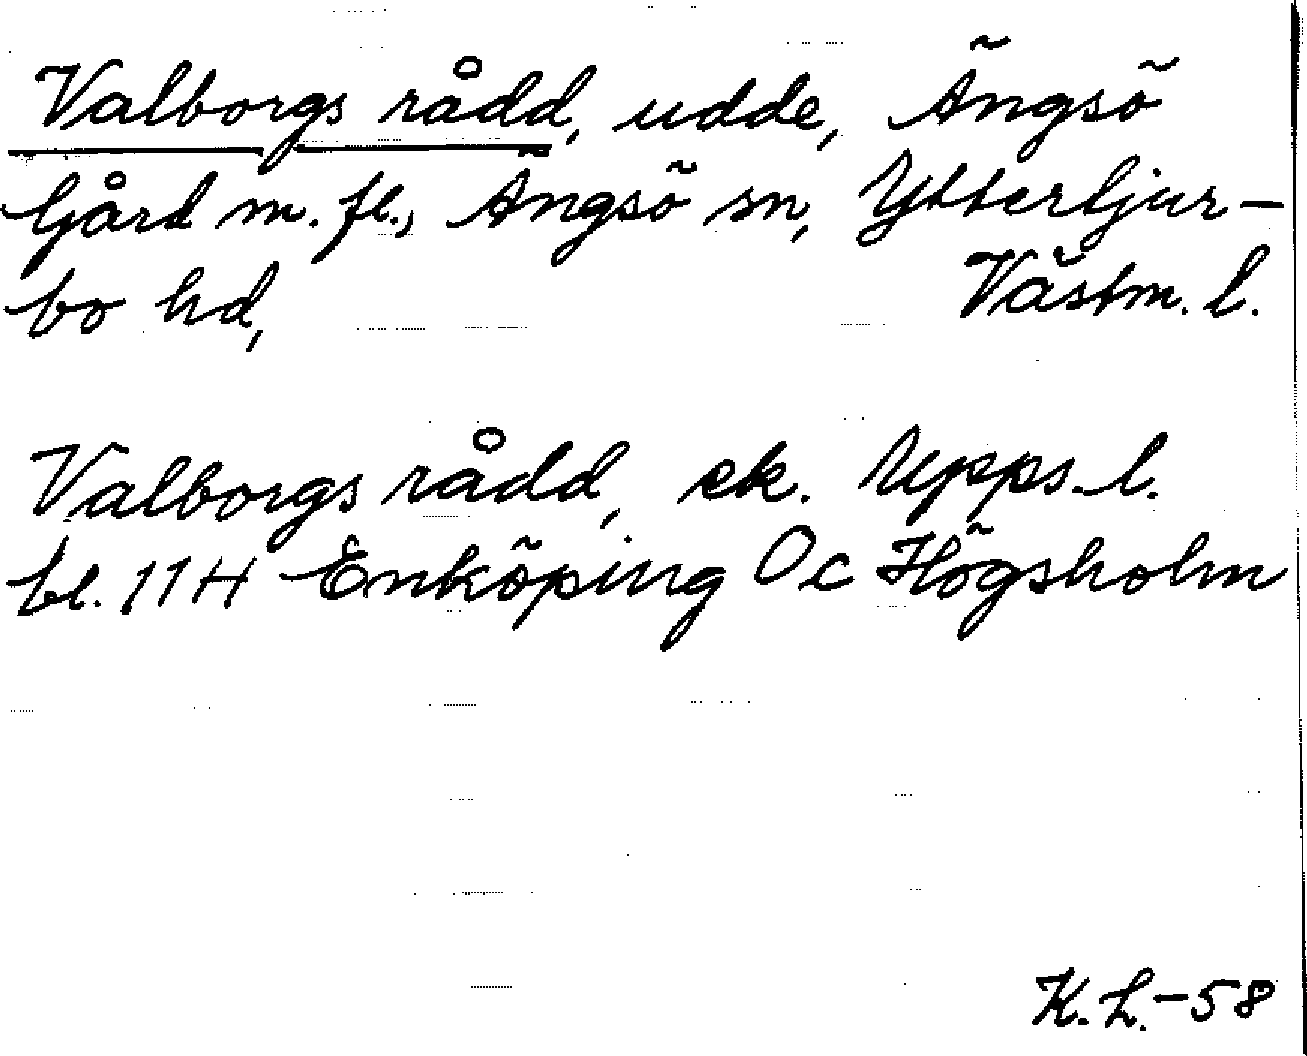 Valborgs rådd, udde, Ängsö
Gård m. fl., Ängsö sn, Ytterbjur-
bo hd, Västm. l.
Valborgs rådd, ek. Upps. l.
bl. 11H Enköping Oc Högsholm
K. L. -58